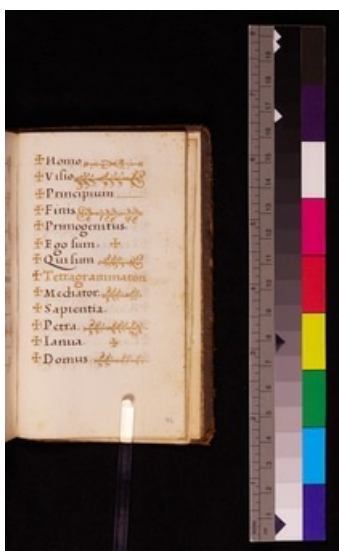 ✠Homo
✠Visio
✠Principium
✠Finis
✠Primogenitus.
✠Ego sum. ✠
✠Qui sum
✠Tetragrammaton
✠Mediator.
✠Sapientia.
✠Petra.
✠Ianua. ✠
✠Domus